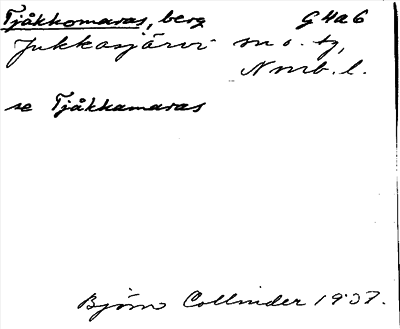 Tjåkkomaras, berg G4a6
Jukkasjärvi sn o. tg,
Nmb. l.
se Tjåkkamaras
Björn Collinder 1937.